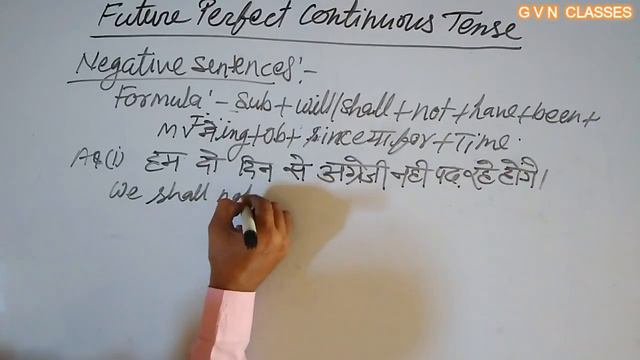 G V N CLASSES
Future Perfect Continuous Tense
Negative sentences:-
Formula:- Sub + will/shall + not + have + been +
MV I में ing + ob + since या for + Time.
(i) हम दो दिन से अंग्रेजी नही पढ़ रहे होगें।
We shall not